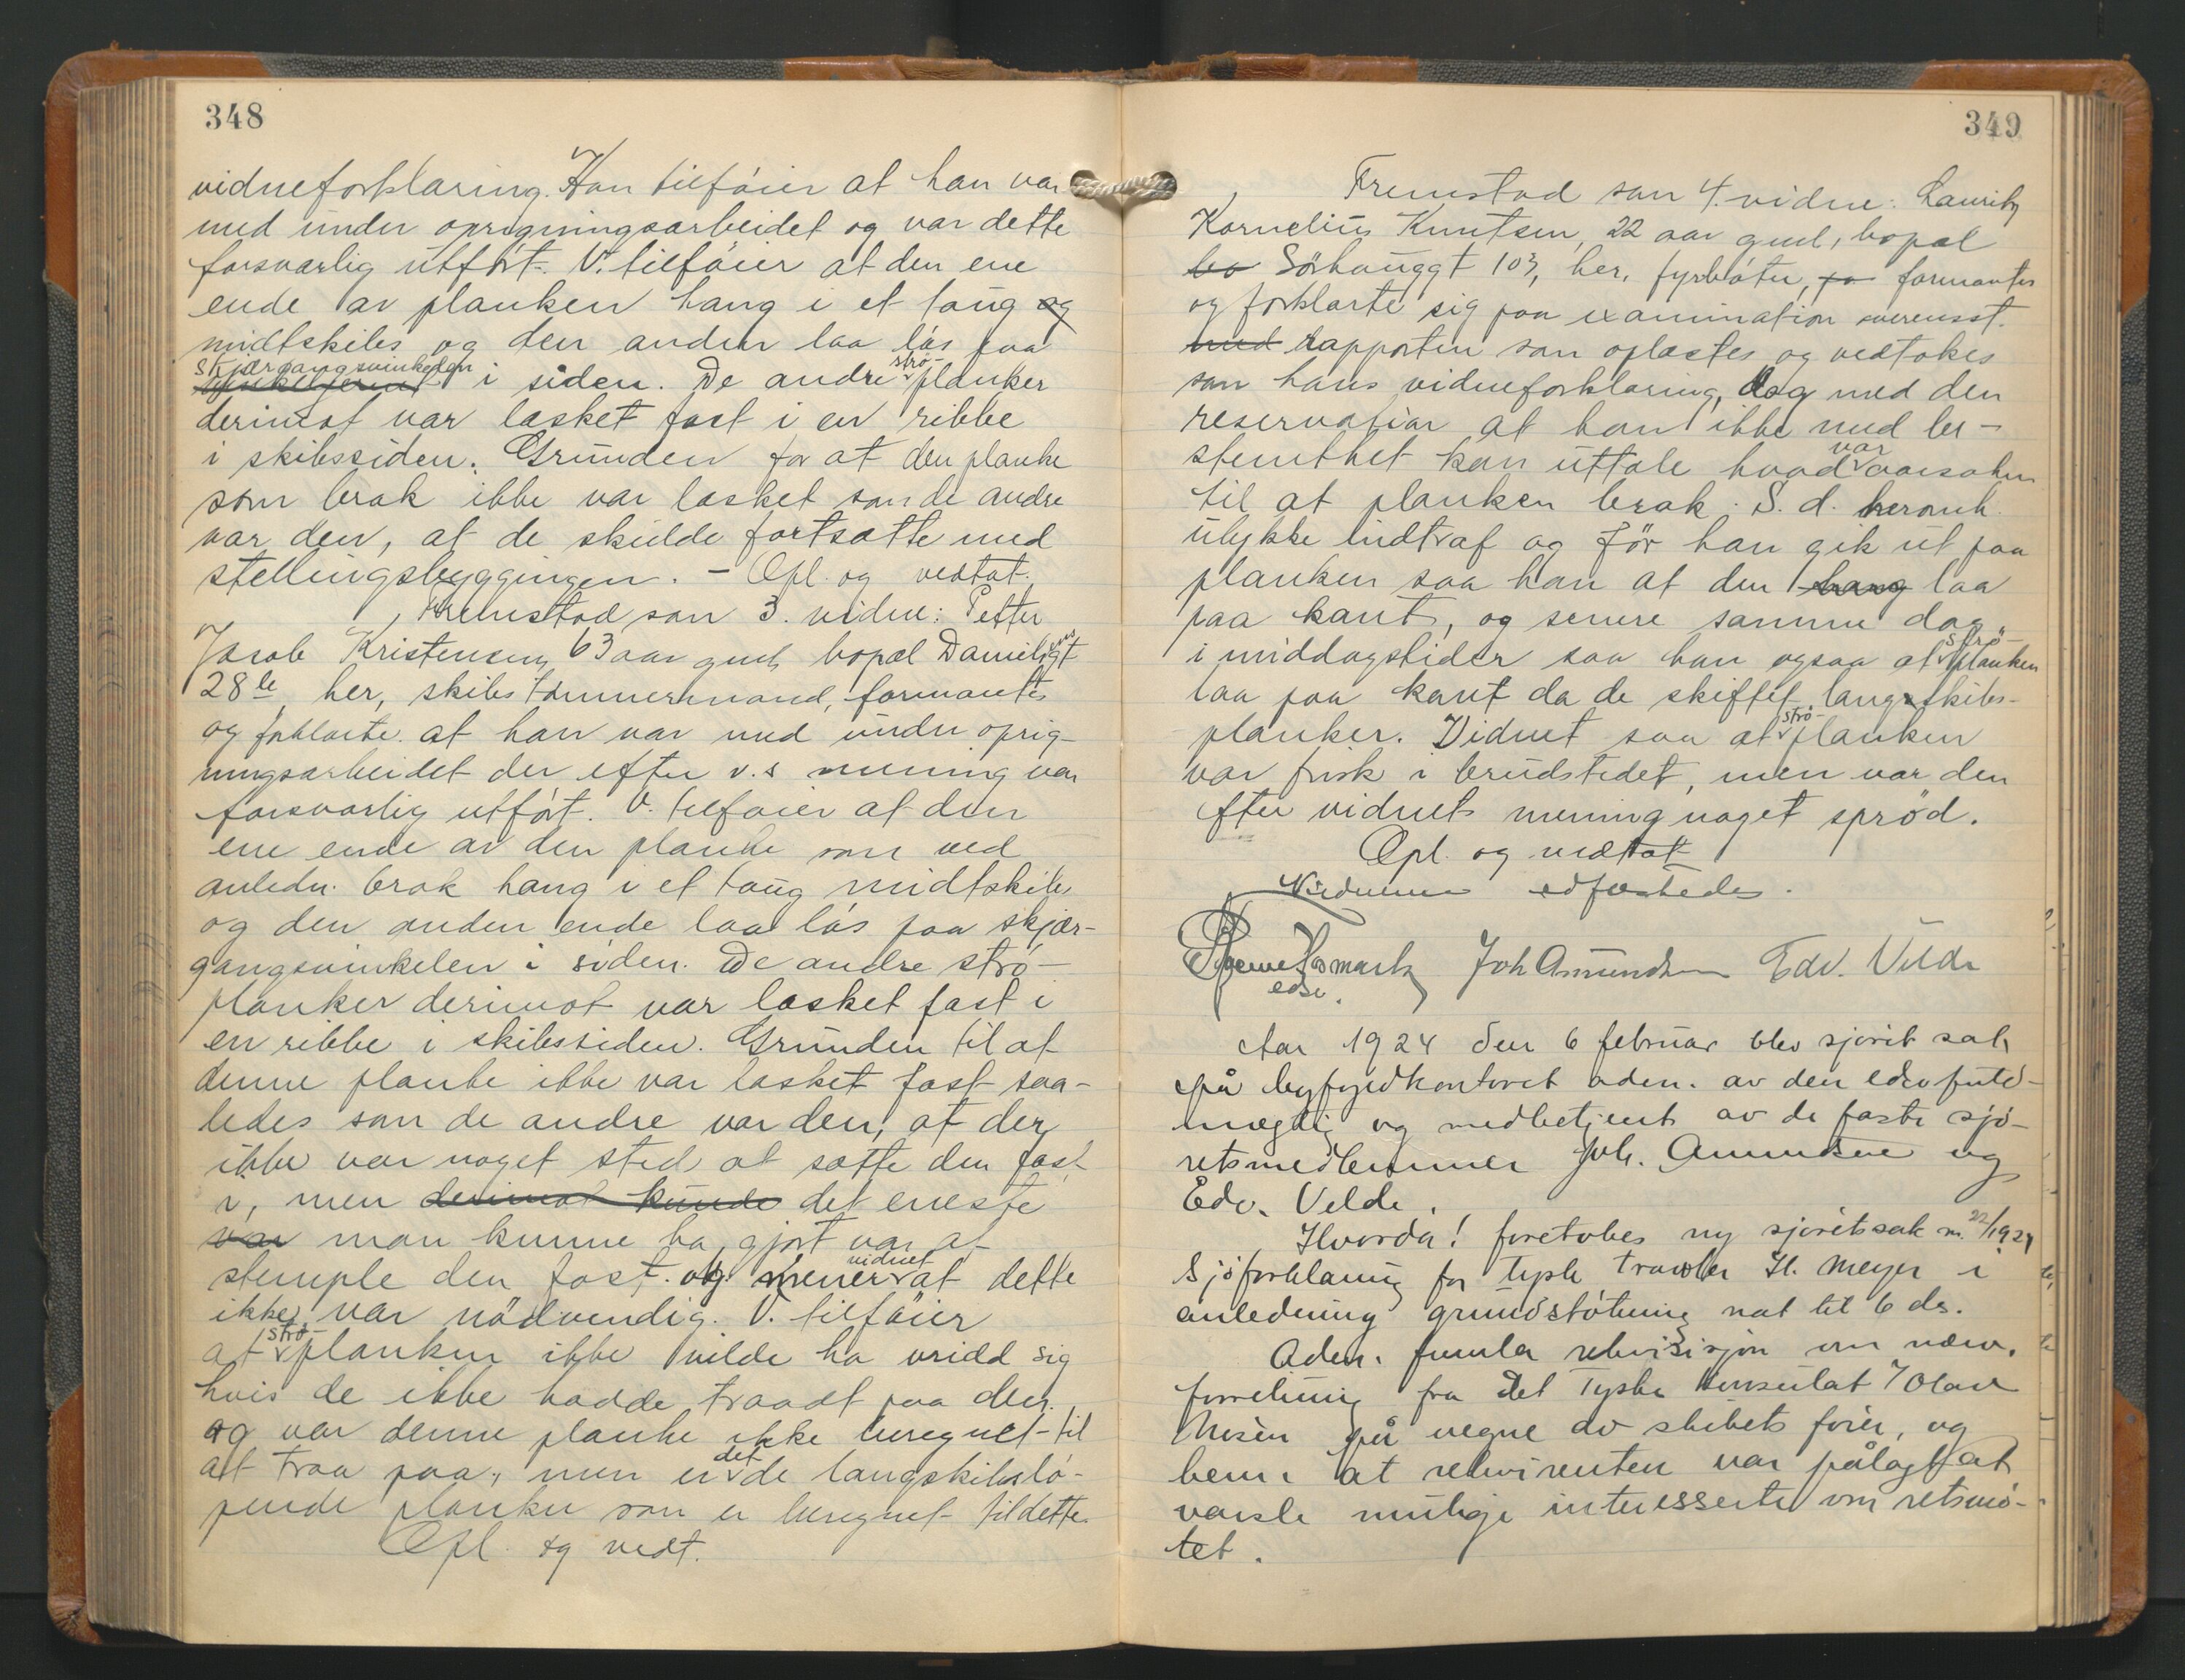 348
vidneforklaring. Han tilføier at han var
med under oprigningsarbeidet og var dette
forsvarlig utført. V. tilføier at den ene
ende av planken hang i et taug og
midtskibs og den anden laa løs paa
skjærgangsvinkelen i siden. De andre strø-planker
derimot var lasket fast i en ribbe
i skibssiden. Grunden for at den planke
som brak ikke var lasket som de andre
var den, at de skulde fortsætte med
stellingsbyggingen. – Opl. og vedtat.
Fremstod som 3. vidne: Petter
Jacob Kristensen, 63 aar gml, bopæl Danielsgt
28 b, her, skibstømmermand, formantes
og forklarte at han var med under oprig-
ningsarbeidet der efter v.s mening var
forsvarlig utført. V. tilføier at den
ene ende av den planke som ved
anledn. brak hang i et taug midtskibs
og den anden ende laa løs paa skjær-
gangsvinkelen i siden. De andre strø-
planker derimot var lasket fast i
en ribbe i skibssiden. Grunden til at
denne planke ikke var lasket fast saa-
ledes som de andre var den, at der
ikke var noget sted at sætte den fast
i, men derimot kunde det eneste
var man kunne ha gjort var at
stemple den fast. og mener vidnet at dette
ikke var nødvendig. V. tilføier
at strø-planken ikke vilde ha vridd sig
hvis de ikke hadde traadt paa den.
og var denne planke ikke beregnet til
at traa paa, men er det de langskibslø-
pende planker som er beregnet til dette.
Opl. og vedt.
349
Fremstod som 4. vidne: Lauritz
Kornelius Knutsen, 22 aar gml, bopæl
bo Sørhauggt 103, her, fyrbøter, formantes
og forklarte sig paa examination overensst.
med rapporten som oplæstes og vedtokes
som hans vidneforklaring, dog med den
reservation at han ikke med be-
stemthet kan uttale hvad var aarsaken
til at planken brak. S. d. heromh.
ulykke indtraf og før han gik ut paa
planken saa han at den hang laa
paa kant, og senere samme dag
i middagstider saa han ogsaa at strø-planken
laa paa kant da de skiftet langskibs-
planker. Vidnet saa at strø-planken
var frisk i brudstedet, men var den
efter vidnets mening noget sprød.
Opl. og vedtat
Vidnerne edfæstedes.
Joh Amundsen Edv. Velde
Aar 1924 den 6 februar blev sjøret sat
på byfogedkontoret aden. av den edsv fuld-
mægtig og medbetjent av de faste sjø-
retsmedlemmer Joh. Amundsen og
Edv. Velde.
Hvorda! foretokes ny sjøretssak nr. 22/1924
Sjøforklaring for tysk trawler H. Meyer i
anledning grundstøtning nat til 6 ds.
Adm. fremla rekvisisjon om nærv.
forretning fra Det Tyske Konsulat / Olav
på vegne av skibets fører, og
bem. at rekvirenten var pålagt at
varsle mulige interesserte om retsmø-
tet.